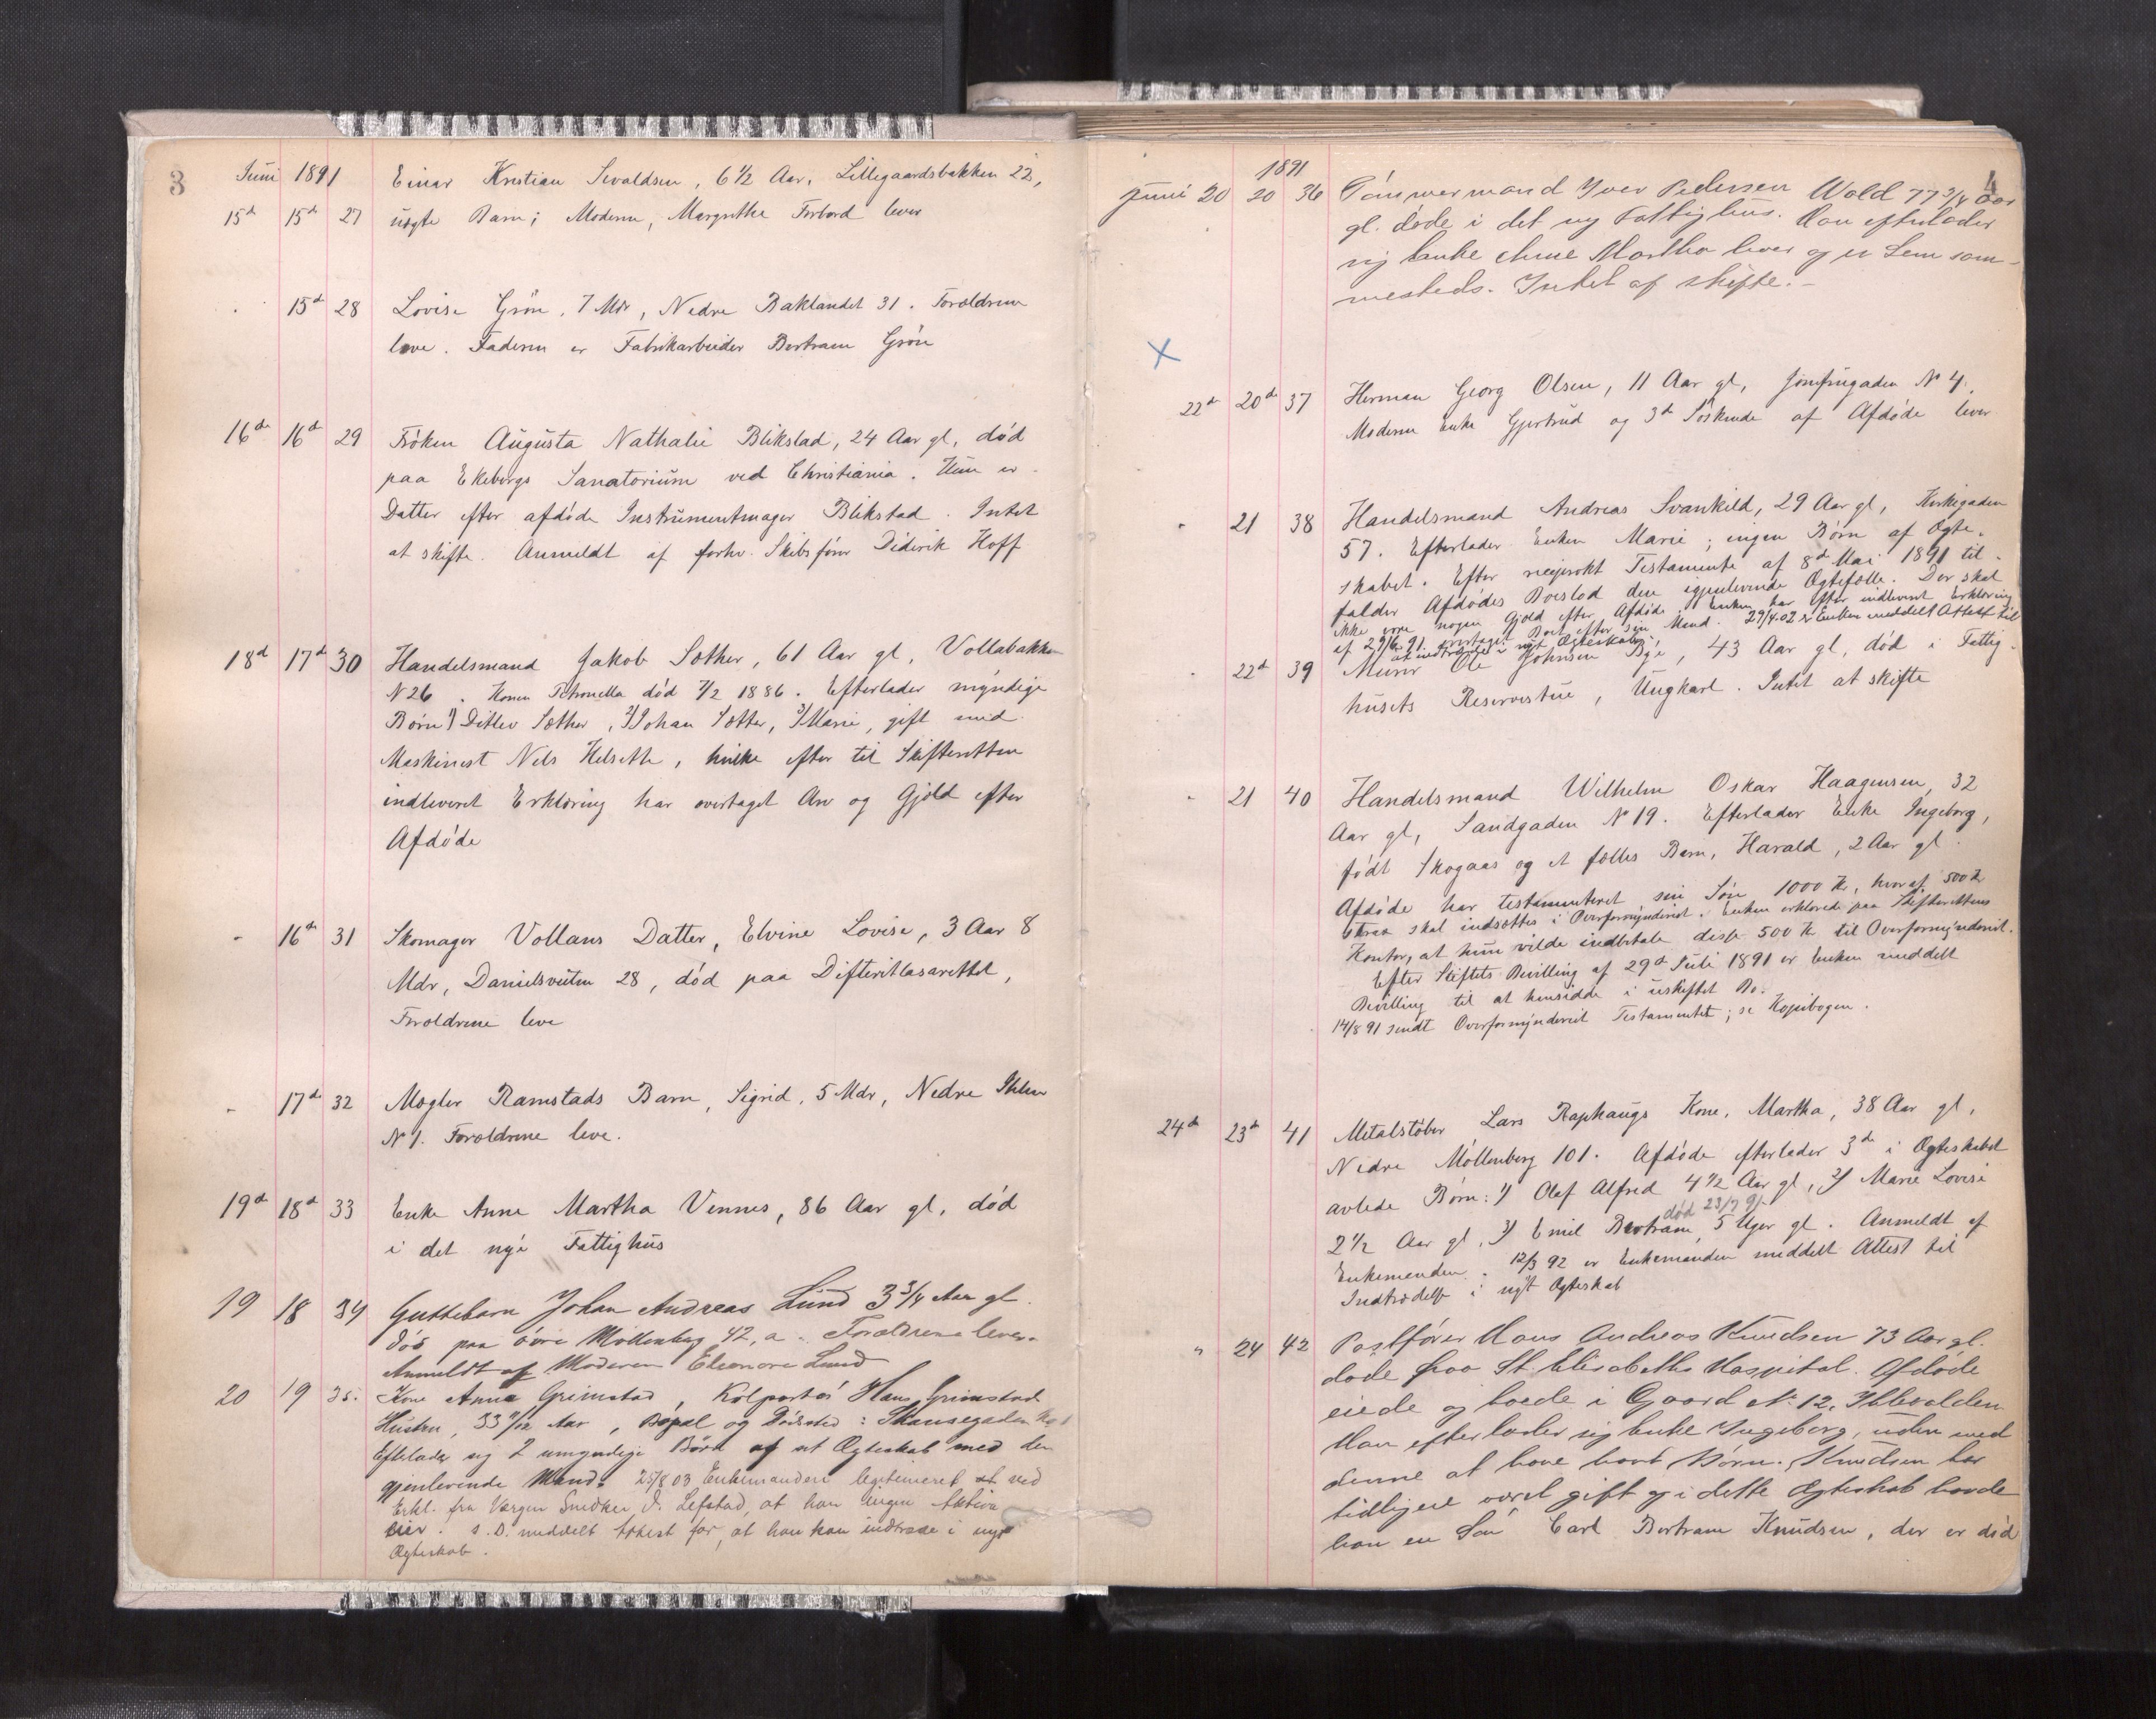 3
Juni 1891 Einar Kristian Sivaldsen, 6 1/2 Aar, Lillegaardsbakken 22,
15de 15de 27 uægte Barn; Moderen, Margrethe Forbord lever
15de 28 Lovise Grøn, 7 Mdr, Nedre Baklandet 31. Forældrene
leve. Faderen er Fabrikarbeider Bertram Grøn
16de 16de 29 Frøken Augusta Nathalie Blikstad, 24 Aar gl, død
paa Ekebergs Sanatorium ved Christiania. Hun er
Datter efter afdøde Instrumentmager Blikstad. Intet
at skifte. Anmeldt af forhv. Skibsfører Diderik Hoff
18de 17de 30 Handelsmand Jakob Sæther, 61 Aar gl, Vollabakken
N 26. Konen Petronella død 7/2 1886. Efterlader myndige
Børn 1) Ditlev Sæther, 2) Johan Sæther, 3) Marie, gift med
Maskinist Nils Helseth, hvilke efter til Skifteretten
indleveret Erklæring har overtaget Arv og Gjæld efter
Afdøde
" 16de 31 Skomager Vollans Datter, Elvine Lovise, 3 Aar 8
Mdr, Danielsveiten 28, død paa Difteritlasarettet,
Forældrene leve
" 17de 32 Mægler Ramstads Barn, Sigrid, 5 Mdr, Nedre Ihlen
N 1. Forældrene leve.
19de 18de 33 Enke Anne Martha Vennes, 86 Aar gl, død
i det nye Fattighus
19 18 34 Guttebarn Johan Andreas Lund 3 3/4 Aar gl.
død paa øvre Møllenberg 42, a. Forældrene lever.
Anmeldt af Moderen Eleonore Lund
20 19 35. Kone Anna Grimstad, Kolportør Hans Grimstads
Hustru, 33 Aar, Bopæl og Dødssted: Skansegaden No 1
Efterlader sig 2 umyndige Børn af sit Ægteskab med den
gjenlevende Mand. 25/8 03 Enkemanden legitimeret ved
Erkl. fra Værgen Snedker J. Lefstad, at han ingen Aktiva
eier. s.D. meddelt Attest for, at han kan indtræde i nyt
Ægteskab.
4
1891
Juni 20 20 36 Tømmermand Iver Pedersen Wold 77 3/4 Aar
gl. døde i det ny Fattighus. Han efterlader
sig Enke Anne Martha lever og er Lem sam-
mesteds. Intet af skifte.-
X
22de 20de 37 Herman Georg Olsen, 11 Aar gl, Jomfrugaden No 4,
Moderen Enke Gjertrud og 3de Søskende af Afdøde lever
" 21 38 Handelsmand Andreas Svankild, 29 Aar gl, Kirkegaden
57. Efterlader Enken Marie; ingen Børn af Ægte-
skabet. Efter reciprokt Testamente af 8de Mai 1891 til-
falder Afdødes Boeslod den igjenlevende Ægtefælle. Der skal
ikke være nogen Gjæld efter Afdøde. Enken har efter indleveret Erklæring
af 29/6 91 overtaget Boet efter sin Mand. 29/4.02 er Enken meddelt Attest til
at indtræde i nyt Ægteskab.
" 22de 39 Murer Ole Johnsen Bye, 43 Aar gl, død i Fattig-
husets Reservestue, Ungkarl. Intet at skifte
" 21 40 Handelsmand Wilhelm Oskar Haagensen, 32
Aar gl, Sandgaden No 19. Efterlader Enke Ingeborg,
født Skogaas og et fælles Barn, Harald, 2 Aar gl.
Afdøde har testamenteret sin Søn 1000 Kr, hvoraf 500 Kr
straa skal indsættes i Overformynderiet. Enken erklærede paa Skifterettens
Kontor, at hun vilde indbetale disse 500 Kr til Overformynderiet.
Efter Stiftets Bevilling af 29de Juli 1891 er Enken meddelt
Bevilling til at hensidde i uskiftet Bo.
14/8 91 sendt Overformynderiet Testamentet; se Kopibogen.
24de 23de 41 Metalstøber Lars Raphaugs Kone, Martha, 38 Aar gl,
Nedre Møllenberg 101. Afdøde efterlader 3de i Ægteskabet
avlede Børn: 1) Olaf Alfred 4 1/2 Aar gl, 2) Marie Lovise
død 23/7 91
2 1/2 Aar gl, 3) Emil Bertram, 5 Uger gl. Anmeldt af
Enkemanden. 12/3 92 er Enkemanden meddelt Attest til
Indtrædelse i nyt Ægteskab
" 24 42 Postfører Hans Andreas Knudsen 73 Aar gl.
døde paa St. Elisabeths Hospital. Afdøde
eiede og boede i Gaard No 12, Ihlevolden
Han efterlader sig Enke Ingeborg, uden med
denne at have havt Børn. Knudsen har
tidligere været gift og i dette Ægteskab havde
han en Søn Carl Bertram Knudsen, der er død